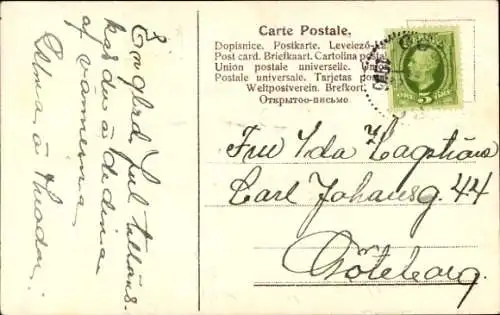 En glad Jul tillöns-
kas du å dedina
af vännerna
Selma å Theodor.
Carte Postale.
Dopisnice. Postkarte. Levelező-
Post card. Briefkaart. Cartolina postal
Union postale universelle. Union
Postale universale. Tarjetas po
Weltpostverein. Brefkort.
Открытое письмо
5
Fru Ida Hagström
Carl Johansg. 44
Göteborg.